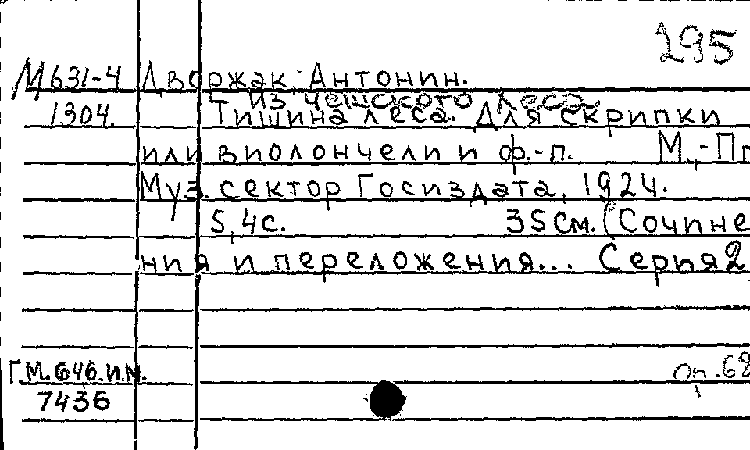 295
М631-4 Дворжак, Антонин.
Из чешского леса.
1304. Тишина леса. Для скрипки
или виолончели и ф.-п. М.,-Пг
Муз. сектор Госиздата, 1924.
5,4с. 35см. (Сочине
ния и переложения... Серия 2
Г.М.646.и.м.
Ор.68
7436